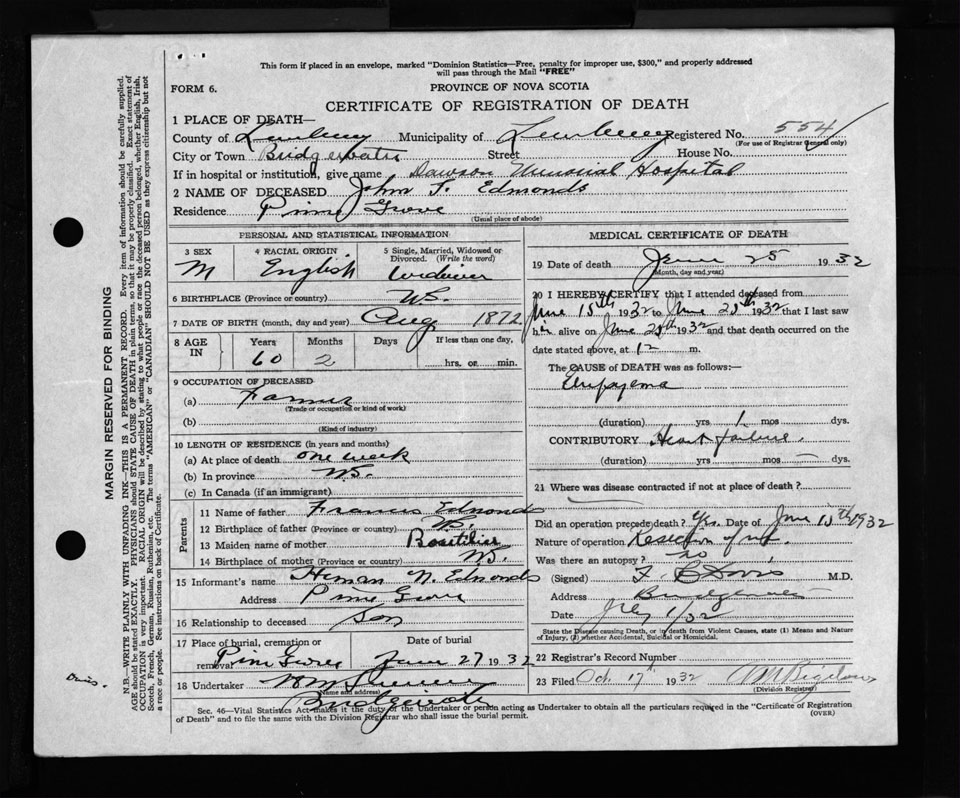 This form if placed in an envelope, marked "Dominion Statistics—Free, penalty for improper use, $300," and properly addressed
will pass through the Mail "FREE"
FORM 6. PROVINCE OF NOVA SCOTIA
CERTIFICATE OF REGISTRATION OF DEATH
1 PLACE OF DEATH—
County of Lunenburg Municipality of Lunenburg Registered No. 554
(For use of Registrar General only)
City or Town Bridgewater Street House No.
If in hospital or institution, give name Dawson Memorial Hospital
2 NAME OF DECEASED John T. Edmonds
Residence Pine Grove
(Usual place of abode)
PERSONAL AND STATISTICAL INFORMATION
3 SEX 4 RACIAL ORIGIN 5 Single, Married, Widowed or Divorced. (Write the word)
M English Widower
6 BIRTHPLACE (Province or country) N.S.
7 DATE OF BIRTH (month, day and year) Aug 1872
8 AGE IN Years Months Days If less than one day,
60 2 hrs. or min.
9 OCCUPATION OF DECEASED
(a) Farmer
(Trade or occupation or kind of work)
(b)
(Kind of industry)
10 LENGTH OF RESIDENCE (in years and months)
(a) At place of death one week
(b) In province N.S.
(c) In Canada (if an immigrant)
Parents
11 Name of father Francis Edmonds
12 Birthplace of father (Province or country) N.S.
13 Maiden name of mother
14 Birthplace of mother (Province or country) N.S.
15 Informant's name Heman N. Edmonds
Address Pine Grove
16 Relationship to deceased Son
17 Place of burial, cremation or removal Pine Grove Date of burial June 27 1932
18 Undertaker
(Name and address)
Bridgewater
MEDICAL CERTIFICATE OF DEATH
19 Date of death June 25 1932
(Month, day and year)
20 I HEREBY CERTIFY that I attended deceased from
June 15th 1932 to June 25th 1932 that I last saw
him alive on June 25th 1932 and that death occurred on
date stated above, at 12 m.
The CAUSE of DEATH was as follows:—
Empyema
(duration) yrs 1 mos dys.
CONTRIBUTORY Heart failure.
(duration) yrs mos dys.
21 Where was disease contracted if not at place of death?
Did an operation precede death? Yes. Date of June 15th 1932
Nature of operation Resection of rib.
Was there an autopsy? no
(Signed) M.D.
Address Bridgewater
Date July 1/32
State the Disease causing Death, or in death from Violent Causes, state (1) Means and Nature
of Injury, (2) whether Accidental, Suicidal or Homicidal.
22 Registrar's Record Number
23 Filed Oct 17th 1932
(Division Registrar)
Sec. 46—Vital Statistics Act makes it the duty of the Undertaker or person acting as Undertaker to obtain all the particulars required in the "Certificate of Registration
of Death" and to file the same with the Division Registrar who shall issue the burial permit. (OVER)
MARGIN RESERVED FOR BINDING
N.B.—WRITE PLAINLY WITH UNFADING INK—THIS IS A PERMANENT RECORD. Every item of information should be carefully supplied.
AGE should be stated EXACTLY. PHYSICIANS should STATE CAUSE OF DEATH in plain terms, so that it may be properly classified. Exact statement of
OCCUPATION is very important. RACIAL ORIGIN will be described by stating to what people or race the deceased person belonged, whether English, Irish,
Scotch, French, German, Russian, Ruthenian, etc. The terms "AMERICAN" or "CANADIAN" SHOULD NOT BE USED as they express citizenship but not
a race or people. See instructions on back of Certificate.